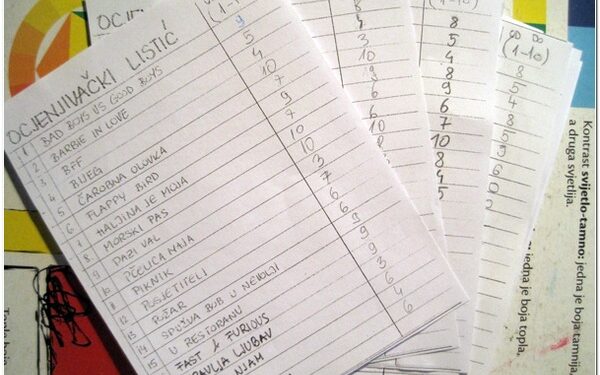 OCJENJIVAČKI LISTIĆ
(1-10)
1 BAD BOYS VS GOOD BOYS 9
2 BARBIE IN LOVE 5
3 BFF 4
4 BIJEG 10
5 ČAROBNA OLOVKA 7
6 FLAPPY BIRD 9
7 HALJINA JE MOJA 7
8 MORSKI PAS 10
9 PAZI VAL 10
10 PČELICA NAJA 3
PIKNIK 7
12 POSJETITELJI 6
13 POŽAR 6
14 SPUŽVA BOB U NEVOLJI 9
15 U RESTORANU 9
FAST & FURIOUS 3
LJUBAV 6
NJAM 4
6
OCJE
8
4
3
10
8
6
6
6
10
(1-10)
8
5
4
8
9
6
7
10
8
4
5
OD DO
(1-10)
8
5
4
8
5
5
6
0
2
Kontrast svijetlo-tamno: jedna je boja tamnija,
a druga svjetlija.
jedna je boja topla,